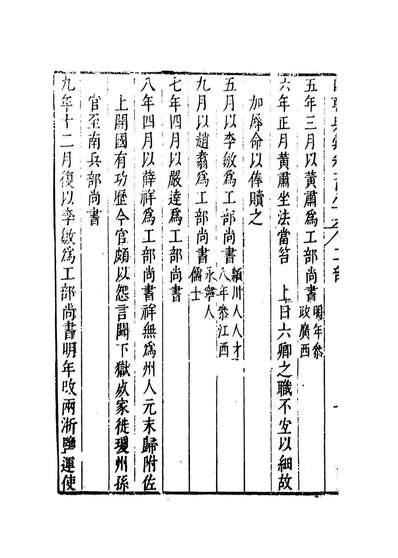 五年三月以黃肅爲工部尚書明年叅
政廣西
六年正月黃肅坐法當笞　上曰六卿之職不宜以細故
加辱命以俸贖之
五月以李敏爲工部尚書潁川人人才
八年叅江西
九月以趙翥爲工部尚書永寧人
儒士
七年四月以嚴達爲工部尚書
八年四月以薛祥爲工部尚書祥無爲州人元末歸附佐
上開國有功歷今官頗以怨言闕下獄
家徙瓊州孫
官至南兵部尚書
九年十二月復以李敏爲工部尚書明年改兩浙鹽運使